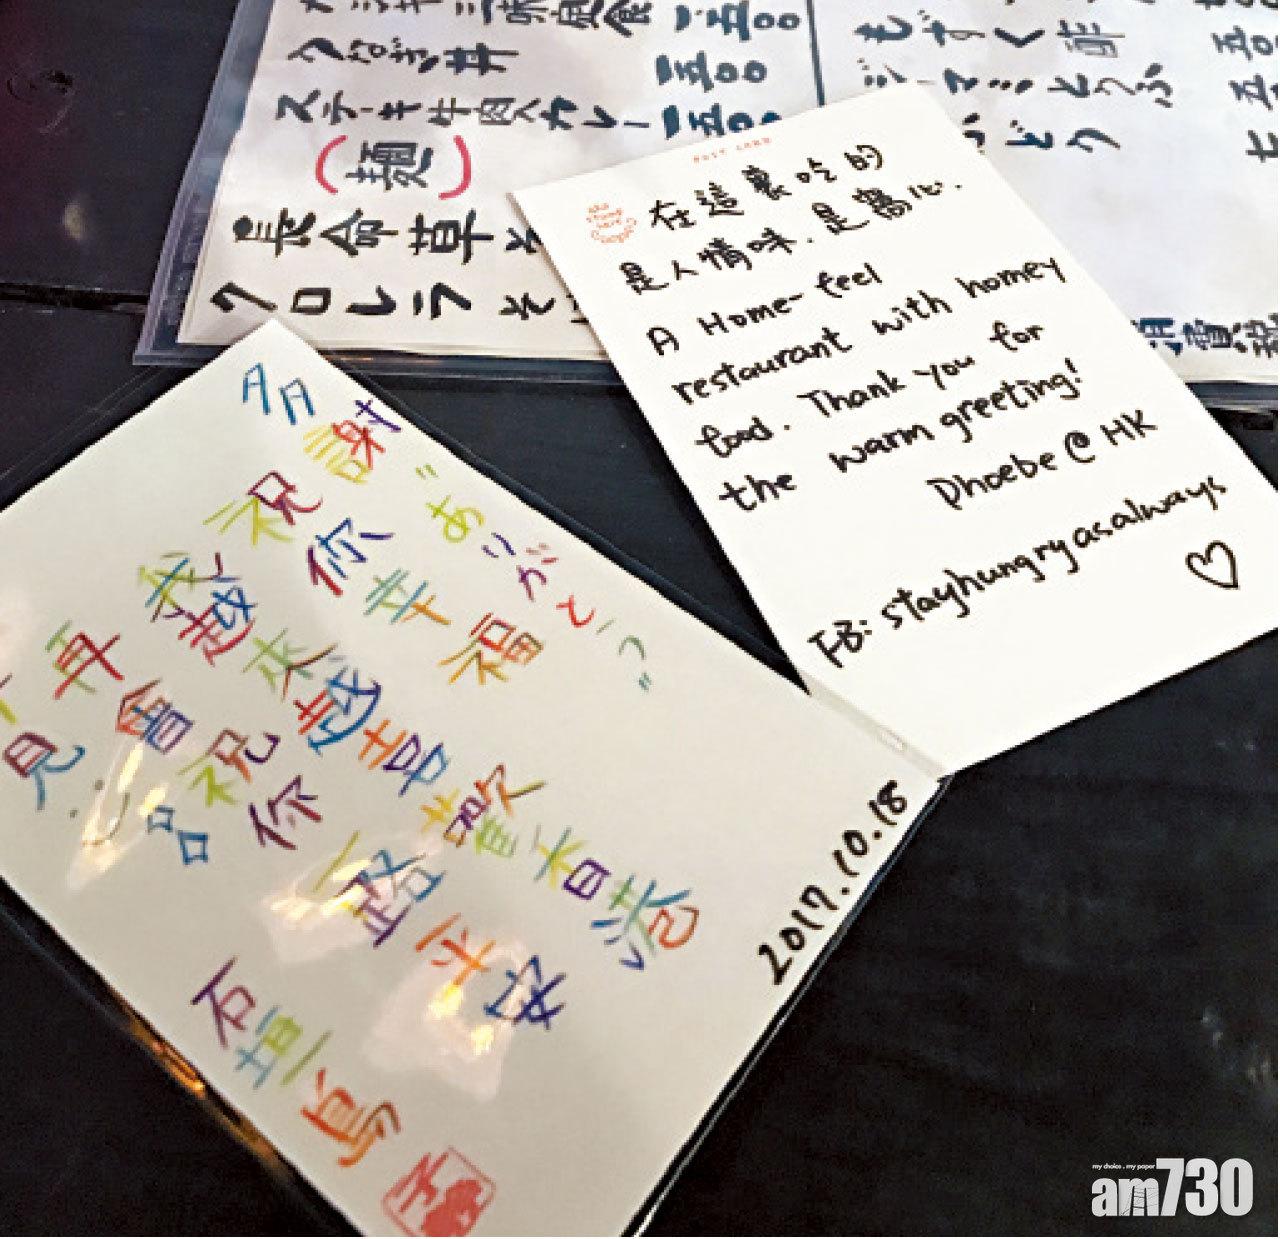 ステーキ牛肉入カレー
(麺)
長命草そ
クロレラそ
もずく酢
ジーマミとうふ
POST CARD
在這裏吃的
是人情味.是窩心.
A Home-feel
restaurant with homey
food. Thank you for
the warm greeting!
Phoebe @ HK
FB: stayhungryasalways
多謝 "ありがとう"
祝你幸福
我越來越喜歡香港
再會 祝你一路平安
見
石垣島
2017.10.18
my choice. my paper
am730